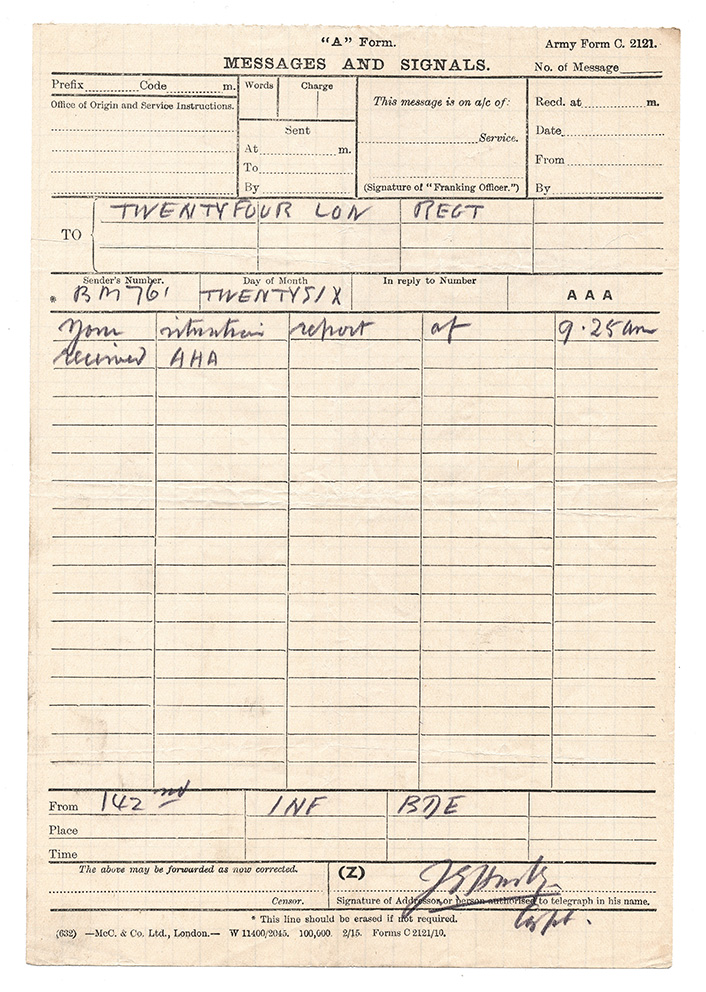 "A" Form.
Army Form C. 2121.
MESSAGES AND SIGNALS.
No. of Message
Prefix Code m.
Words Charge
This message is on a/c of:
Recd. at m.
Office of Origin and Service Instructions.
Sent
Service.
Date
At m.
From
To
By
(Signature of "Franking Officer.")
By
TO
TWENTYFOUR LON REGT
Sender's Number.
Day of Month
In reply to Number
AAA
* BM761
TWENTYSIX
Your situation report of 9.25 am
received AAA
From 142nd INF BDE
Place
Time
The above may be forwarded as now corrected.
(Z)
Censor.
Signature of Addressor or person authorised to telegraph in his name.
Capt.
* This line should be erased if not required.
(632) —McC. & Co. Ltd., London.— W 11400/2045. 100,000. 2/15. Forms C 2121/10.